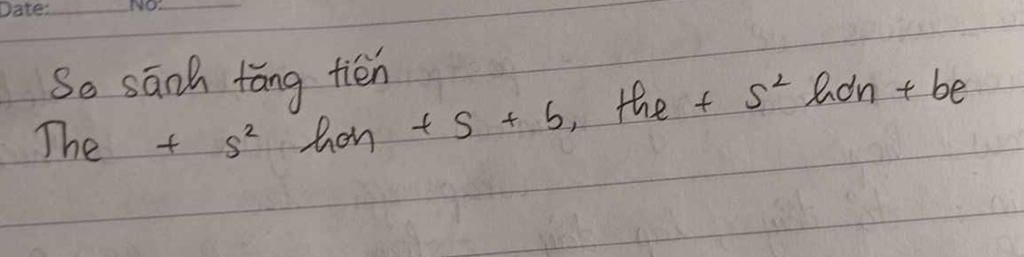 Date: No:
So sánh tăng tiến
The + s² hơn + s + b, the + s² hơn + be